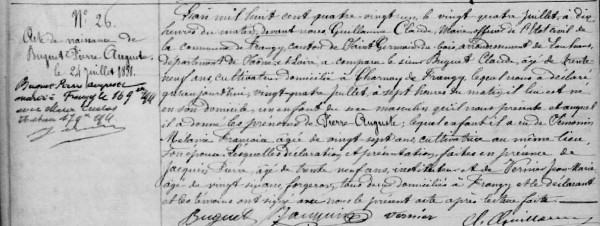 N° 26.
Acte de naissance de
Buguet Pierre Auguste
le 24 juillet 1891.
Buguet Pierre Auguste
marié à Frangy le 16 9bre
avec Marie
L'an mil huit cent quatre-vingt onze, le vingt quatre juillet, à dix
heures du matin, devant nous Guillaume Claude, Maire, officier de l'Etat civil de
la commune de Frangy, canton de Saint Germain du bois, arrondissement de Louhans,
département de Saône et Loire, a comparu le sieur Buguet Claude, âgé de trente
neuf ans, cultivateur domicilié à Charnay de Frangy, lequel nous a déclaré
qu'aujourd'hui, vingt-quatre juillet, à sept heures du matin, il leur est né
en son domicile, un enfant du sexe masculin qu'il nous présente et auquel
il a donné les prénoms de Pierre Auguste, lequel enfant il a eu de
Mélanie Françoise, âgée de vingt sept ans, cultivatrice au même lieu,
son épouse. Lesquelles déclaration et présentation, faites en présence de
Jacquin Pierre, âgé de trente neuf ans, instituteur, et de Vernier Jean-Marie
âgé de vingt six ans, forgeron, tous deux domiciliés à Frangy, et le déclarant
et les témoins ont signé avec nous le présent acte après lecture faite.
Buguet Jacquin Vernier Cl. Guillaume